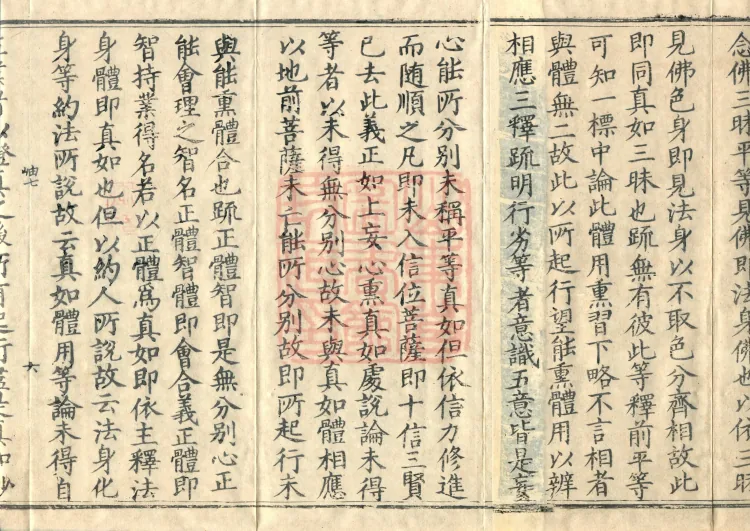 念佛三昧平等見佛即法身佛也以依三昧
見佛色身即見法身以不取色分齊相故此
即同真如三昧也䟽無有彼此等釋前平等
可知一標中論此體用熏習下略不言相者
與體無二故此以所起行望能熏體用以辨
相應三釋䟽明行劣等者意識五意皆是妄
心能所分別未稱平等真如但依信力修進
而随順之凡即未入信位菩薩即十信三賢
已去此義正如上妄心熏真如處說論未得
等者以未得無分別心故未與真如體相應
以地前菩薩未亡能所分別故即所起行未
與能熏體合也䟽正體智即是無分別心正
能會理之智名正體智體即會合義正體即
智持業得名若以正體為真如即依主釋法
身體即真如也但以約人所說故云法身化
身等約法所說故云真如體用等論未得自
岫七
六